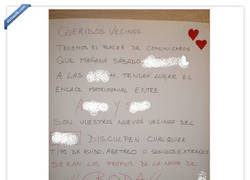 QUERIDOS VECINOS
TENEMOS EL PLACER DE COMUNICAROS
QUE MAÑANA SABADO
A LAS H. TENDRÁ LUGAR EL
ENLACE MATRIMONIAL ENTRE
A Y
SON VUESTROS NUEVOS VECINOS DEL
DISCULPEN CUALQUIER
TIPO DE RUIDO, AJETREO O SONIDOS EXTRAÑOS
SERAN LOS PROPIOS DE LA NOCHE DE
"BODA"